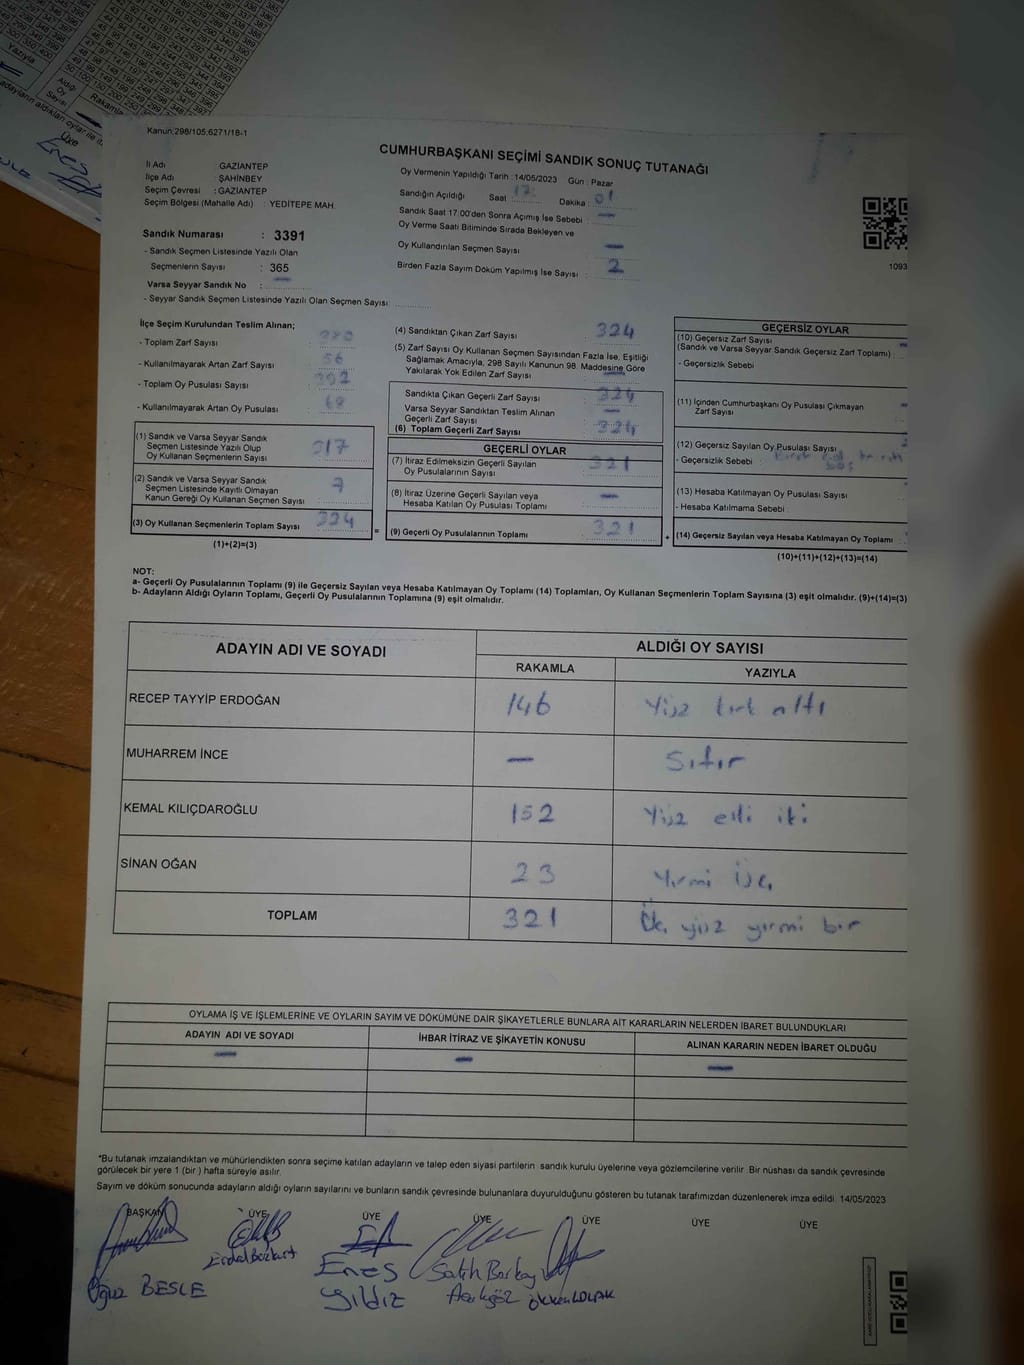 Kanun:298/105;6271/18-1
CUMHURBAŞKANI SEÇİMİ SANDIK SONUÇ TUTANAĞI
İl Adı GAZİANTEP
İlçe Adı ŞAHİNBEY
Seçim Çevresi : GAZİANTEP
Seçim Bölgesi (Mahalle Adı) : YEDİTEPE MAH.
Sandık Numarası : 3391
- Sandık Seçmen Listesinde Yazılı Olan
Seçmenlerin Sayısı : 365
Varsa Seyyar Sandık No : —
- Seyyar Sandık Seçmen Listesinde Yazılı Olan Seçmen Sayısı:
Oy Vermenin Yapıldığı Tarih :14/05/2023 Gün : Pazar
Sandığın Açıldığı Saat 17: Dakika : 01
Sandık Saat 17:00'den Sonra Açımış İse Sebebi : —
Oy Verme Saati Bitiminde Sırada Bekleyen ve
Oy Kullandırılan Seçmen Sayısı —
Birden Fazla Sayım Döküm Yapılmış İse Sayısı : 2
1093
İlçe Seçim Kurulundan Teslim Alınan;
- Toplam Zarf Sayısı : 380
- Kullanılmayarak Artan Zarf Sayısı : 56
- Toplam Oy Pusulası Sayısı : 392
- Kullanılmayarak Artan Oy Pusulası : 68
(1) Sandık ve Varsa Seyyar Sandık
Seçmen Listesinde Yazılı Olup
Oy Kullanan Seçmenlerin Sayısı : 317
(2) Sandık ve Varsa Seyyar Sandık
Seçmen Listesinde Kayıtlı Olmayan
Kanun Gereği Oy Kullanan Seçmen Sayısı : 7
(3) Oy Kullanan Seçmenlerin Toplam Sayısı : 324
(1)+(2)=(3)
(4) Sandıktan Çıkan Zarf Sayısı : 324
(5) Zarf Sayısı Oy Kullanan Seçmen Sayısından Fazla İse, Eşitliği
Sağlamak Amacıyla, 298 Sayılı Kanunun 98. Maddesine Göre
Yakılarak Yok Edilen Zarf Sayısı : —
Sandıkta Çıkan Geçerli Zarf Sayısı : 324
Varsa Seyyar Sandıktan Teslim Alınan
Geçerli Zarf Sayısı : —
(6) Toplam Geçerli Zarf Sayısı : 324
GEÇERLİ OYLAR
(7) İtiraz Edilmeksizin Geçerli Sayılan
Oy Pusulalarının Sayısı : 321
(8) İtiraz Üzerine Geçerli Sayılan veya
Hesaba Katılan Oy Pusulası Toplamı : —
= (9) Geçerli Oy Pusulalarının Toplamı : 321
GEÇERSİZ OYLAR
(10) Geçersiz Zarf Sayısı
(Sandık ve Varsa Seyyar Sandık Geçersiz Zarf Toplamı)
- Geçersizlik Sebebi :
(11) İçinden Cumhurbaşkanı Oy Pusulası Çıkmayan
Zarf Sayısı
(12) Geçersiz Sayılan Oy Pusulası Sayısı
- Geçersizlik Sebebi : boş
(13) Hesaba Katılmayan Oy Pusulası Sayısı
- Hesaba Katılmama Sebebi :
+ (14) Geçersiz Sayılan veya Hesaba Katılmayan Oy Toplamı :
(10)+(11)+(12)+(13)=(14)
NOT:
a- Geçerli Oy Pusulalarının Toplamı (9) ile Geçersiz Sayılan veya Hesaba Katılmayan Oy Toplamı (14) Toplamları, Oy Kullanan Seçmenlerin Toplam Sayısına (3) eşit olmalıdır. (9)+(14)=(3)
b- Adayların Aldığı Oyların Toplamı, Geçerli Oy Pusulalarının Toplamına (9) eşit olmalıdır.
ADAYIN ADI VE SOYADI ALDIĞI OY SAYISI
RAKAMLA YAZIYLA
RECEP TAYYİP ERDOĞAN 146 Yüz kırk altı
MUHARREM İNCE — Sıfır
KEMAL KILIÇDAROĞLU 152 Yüz elli iki
SİNAN OĞAN 23 Yirmi üç
TOPLAM 321 Üç yüz yirmi bir
OYLAMA İŞ VE İŞLEMLERİNE VE OYLARIN SAYIM VE DÖKÜMÜNE DAİR ŞİKAYETLERLE BUNLARA AİT KARARLARIN NELERDEN İBARET BULUNDUKLARI
ADAYIN ADI VE SOYADI İHBAR İTİRAZ VE ŞİKAYETİN KONUSU ALINAN KARARIN NEDEN İBARET OLDUĞU
— — —
*Bu tutanak imzalandıktan ve mühürlendikten sonra seçime katılan adayların ve talep eden siyasi partilerin sandık kurulu üyelerine veya gözlemcilerine verilir. Bir nüshası da sandık çevresinde
görülecek bir yere 1 (bir) hafta süreyle asılır.
Sayım ve döküm sonucunda adayların aldığı oyların sayılarını ve bunların sandık çevresinde bulunanlara duyurulduğunu gösteren bu tutanak tarafımızdan düzenlenerek imza edildi. 14/05/2023
BAŞKAN ÜYE ÜYE ÜYE ÜYE ÜYE ÜYE
Oğuz BESLE
Erdal Bozkurt
Enes
Yıldız
Salih Berkay
Açıkgöz